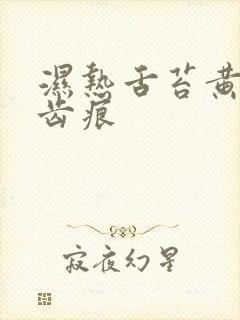 濕熱舌苔黄
齿痕
寂夜幻星